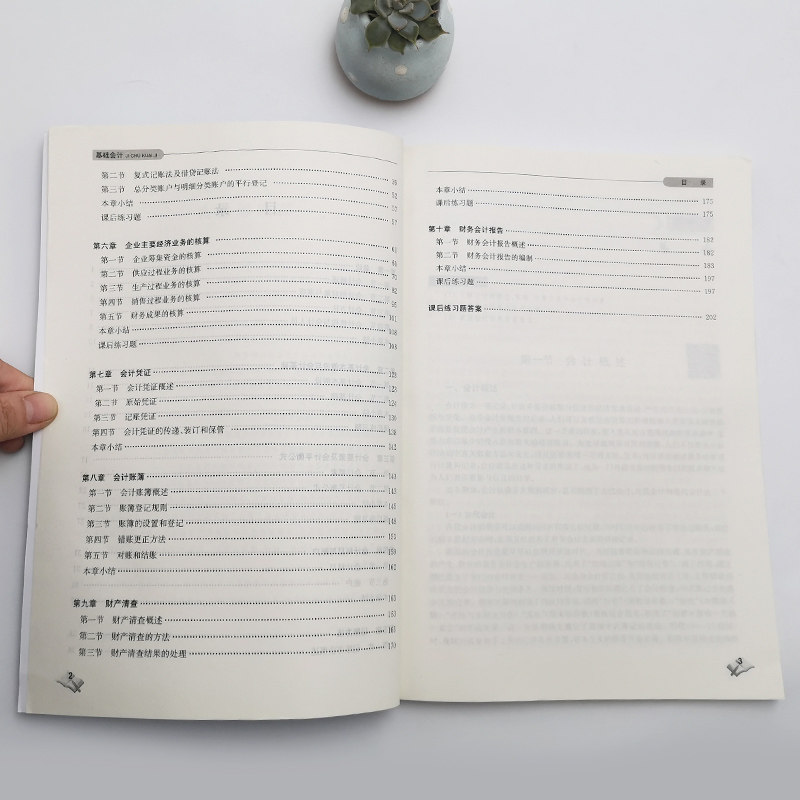 基础会计 JI CHU KUAI JI
第二节 复式记账法及借贷记账法
第三节 总分类账户与明细分类账户的平行登记 52
本章小结 57
课后练习题 57
第六章 企业主要经济业务的核算 61
第一节 企业筹集资金的核算
第二节 供应过程业务的核算
第三节 生产过程业务的核算 82
第四节 销售过程业务的核算 95
第五节 财务成果的核算 101
本章小结 108
课后练习题 108
第七章 会计凭证 123
第一节 会计凭证概述 123
第二节 原始凭证 124
第三节 记账凭证 130
第四节 会计凭证的传递、装订和保管 138
本章小结 142
第八章 会计账簿 143
第一节 会计账簿概述 143
第二节 账簿登记规则 145
第三节 账簿的设置和登记 148
第四节 错账更正方法 151
第五节 对账和结账 159
本章小结 162
第九章 财产清查 163
第一节 财产清查概述 163
第二节 财产清查的方法 165
第三节 财产清查结果的处理 170
2
目 录
本章小结 175
课后练习题 175
第十章 财务会计报告 182
第一节 财务会计报告概述 182
第二节 财务会计报告的编制 185
本章小结 197
课后练习题 197
课后练习题答案 202
3